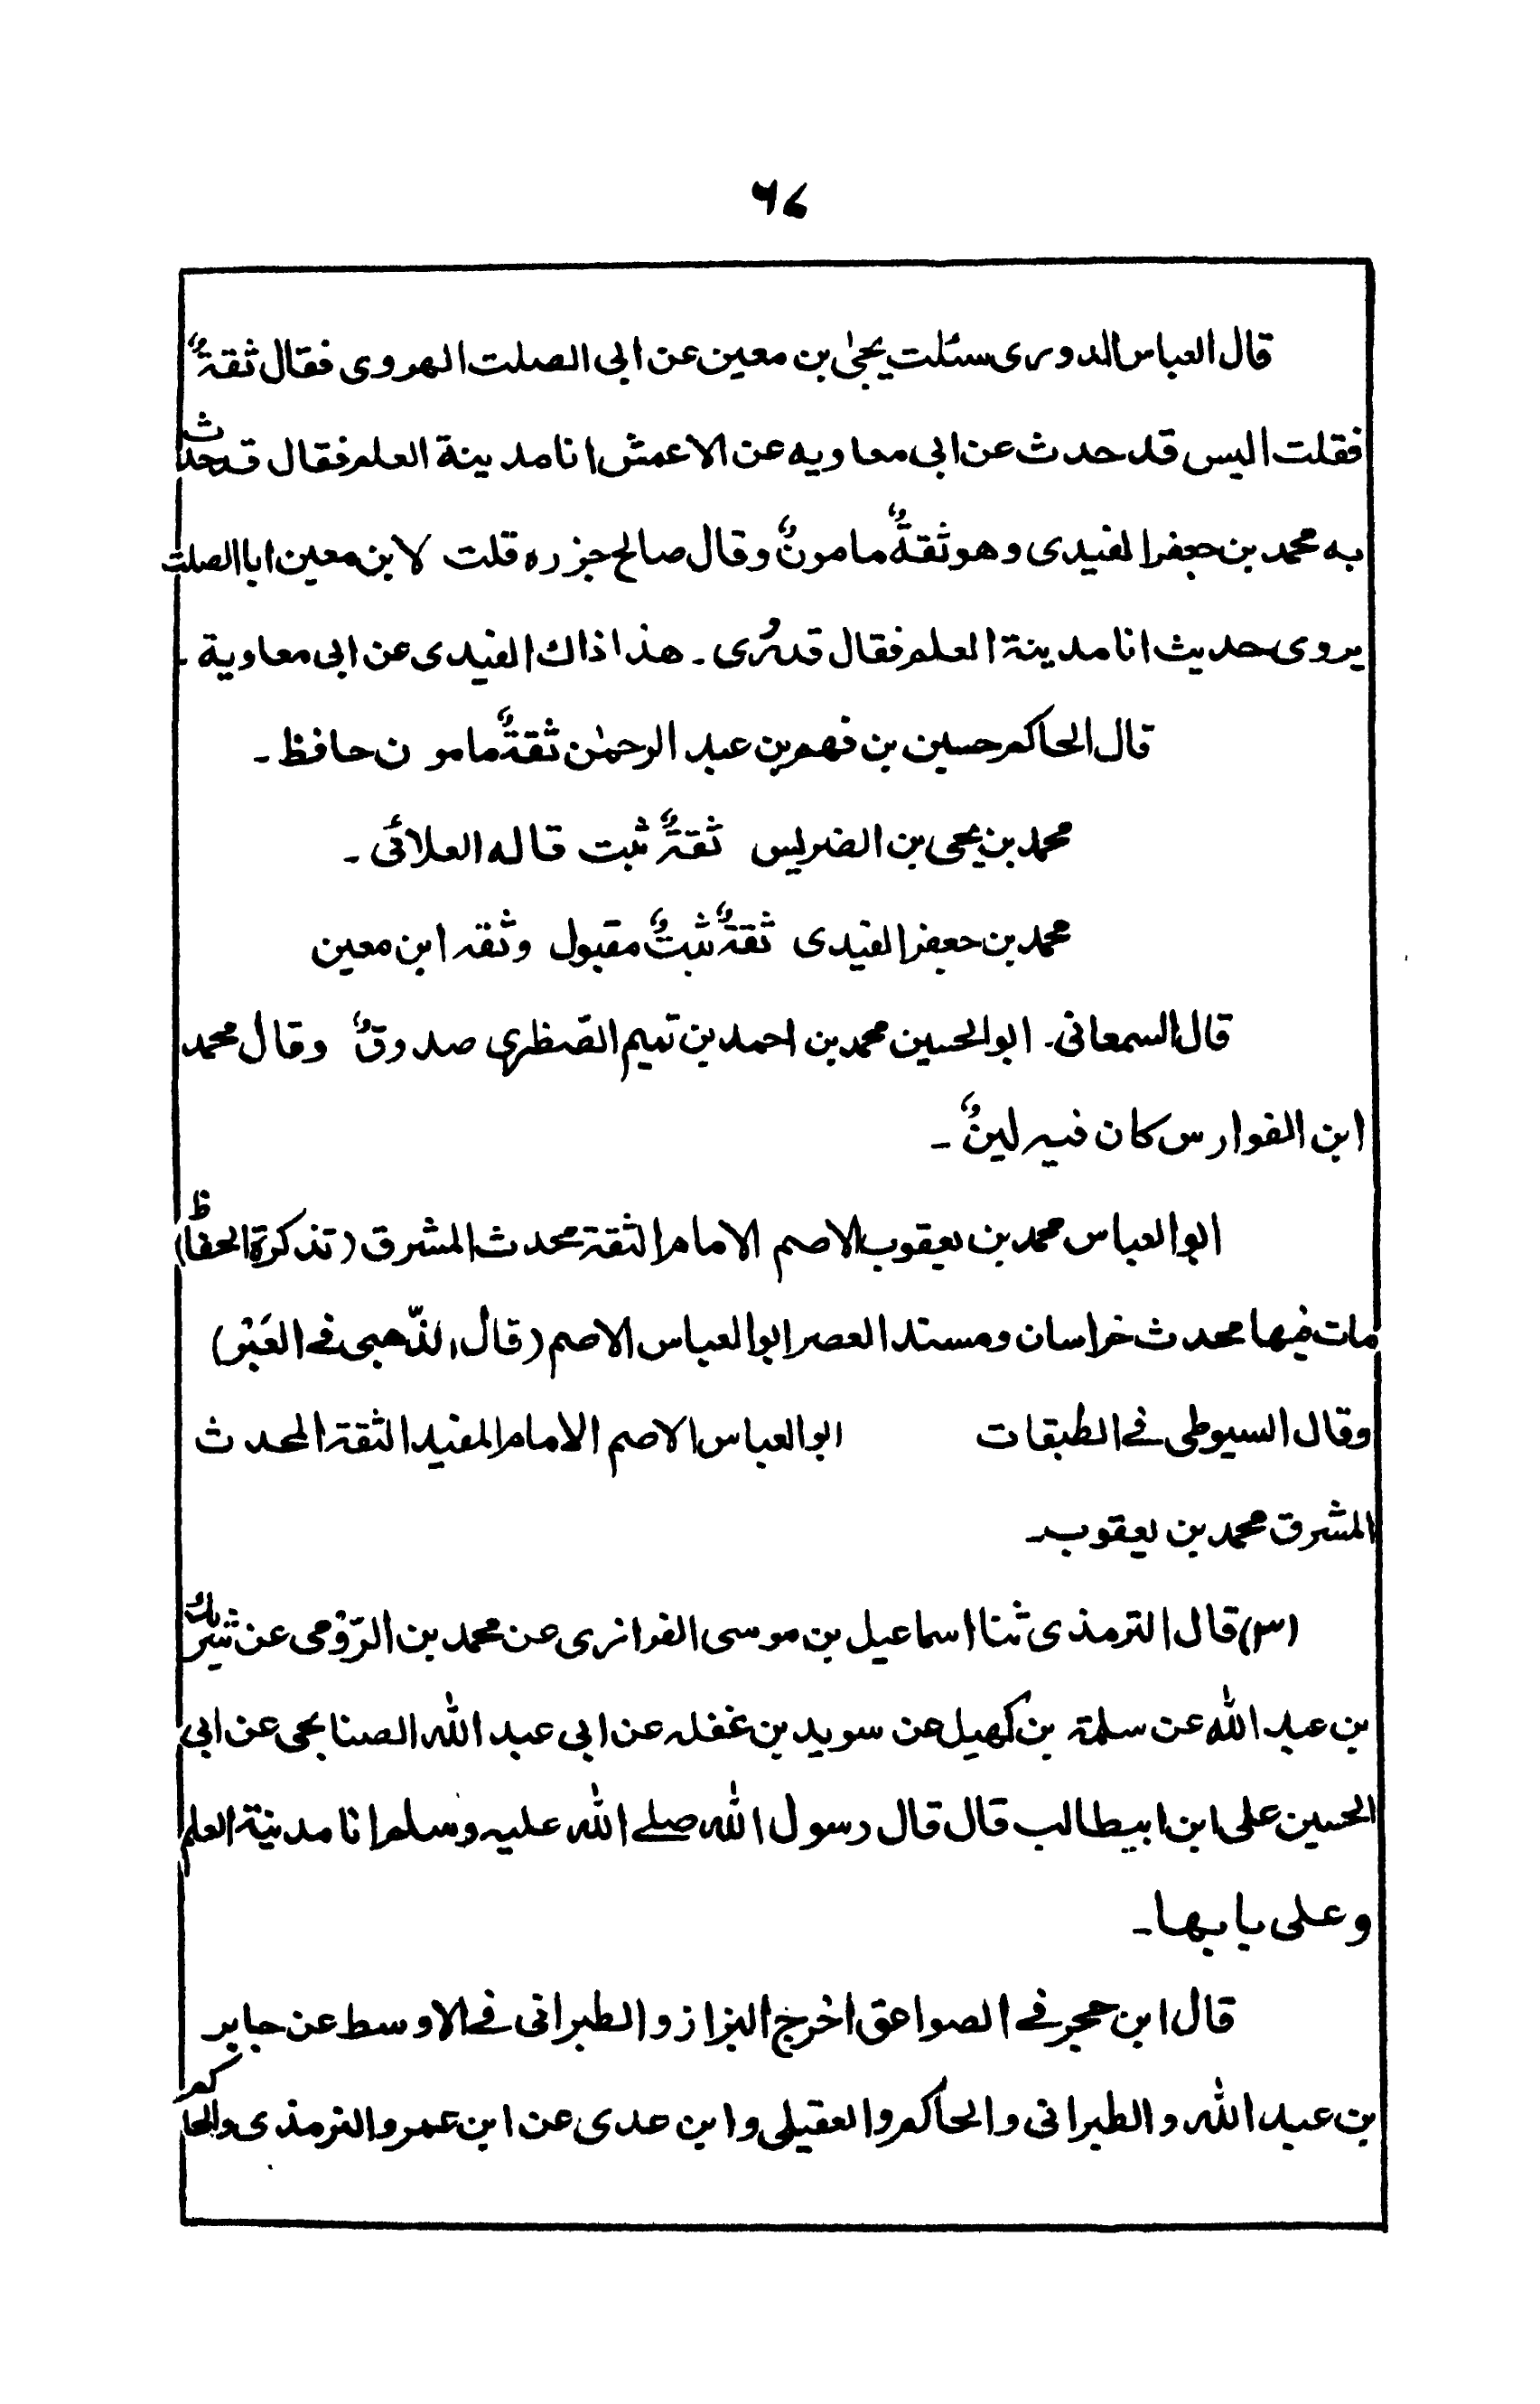 ۶۷
قال العباس الدوری سئلت یحیٰی بن معین عن ابی الصلت الهروی فقال ثقةٌ
فقلت الیس قد حدث عن ابی معاویه عن الاعمش انا مدینة العلم فقال قد حدث
به محمد بن جعفر الفیدی وهو ثقةٌ مامونٌ وقال صالح جزره قلت لابن معین ابا الصلت
یروی حدیث انا مدینة العلم فقال قد رُی۔ هذا ذاك الفیدی عن ابی معاویة۔
قال الحاکم حسین بن فهم بن عبد الرحمٰن ثقةٌ مامون حافظ۔
محمد بن یحی بن الضریس ثقةٌ ثبت قاله العلائی۔
محمد بن جعفر الفیدی ثقةٌ ثبتٌ مقبول وثقه ابن معین
قال السمعانی۔ ابو الحسین محمد بن احمد بن تمیم القنظری صدوقٌ وقال محمد
ابن الفوارس کان فیه لینٌ۔
ابو العباس محمد بن یعقوب الاصم الامام الثقة محدث المشرق (تذکرة الحفاظ)
مات فیها محدث خراسان ومسند العصر ابو العباس الاصم (قال الذّهبی فے العَبْر)
وقال السیوطی فے الطبقات ابو العباس الاصم الامام المفید الثقة المحدث
المشرق محمد بن یعقوب۔
(۳) قال الترمذی ثنا اسماعیل بن موسی الفزاری عن محمد بن الرّوْمی عن شریك
بن عبد اللّٰه عن سلمة بن کهیل عن سوید بن غفله عن ابی عبد اللّٰه الصنابحی عن ابی
الحسین علی ابن ابیطالب قال قال رسول اللّٰه صلے اللّٰه علیه وسلم انا مدینة العلم
وعلی بابها۔
قال ابن حجر فے الصواعق اخرج البزاز والطبرانی فے الاوسط عن جابر
بن عبد اللّٰه والطبرانی والحاکم والعقیلی وابن عدی عن ابن عمر والترمذی والحاکم